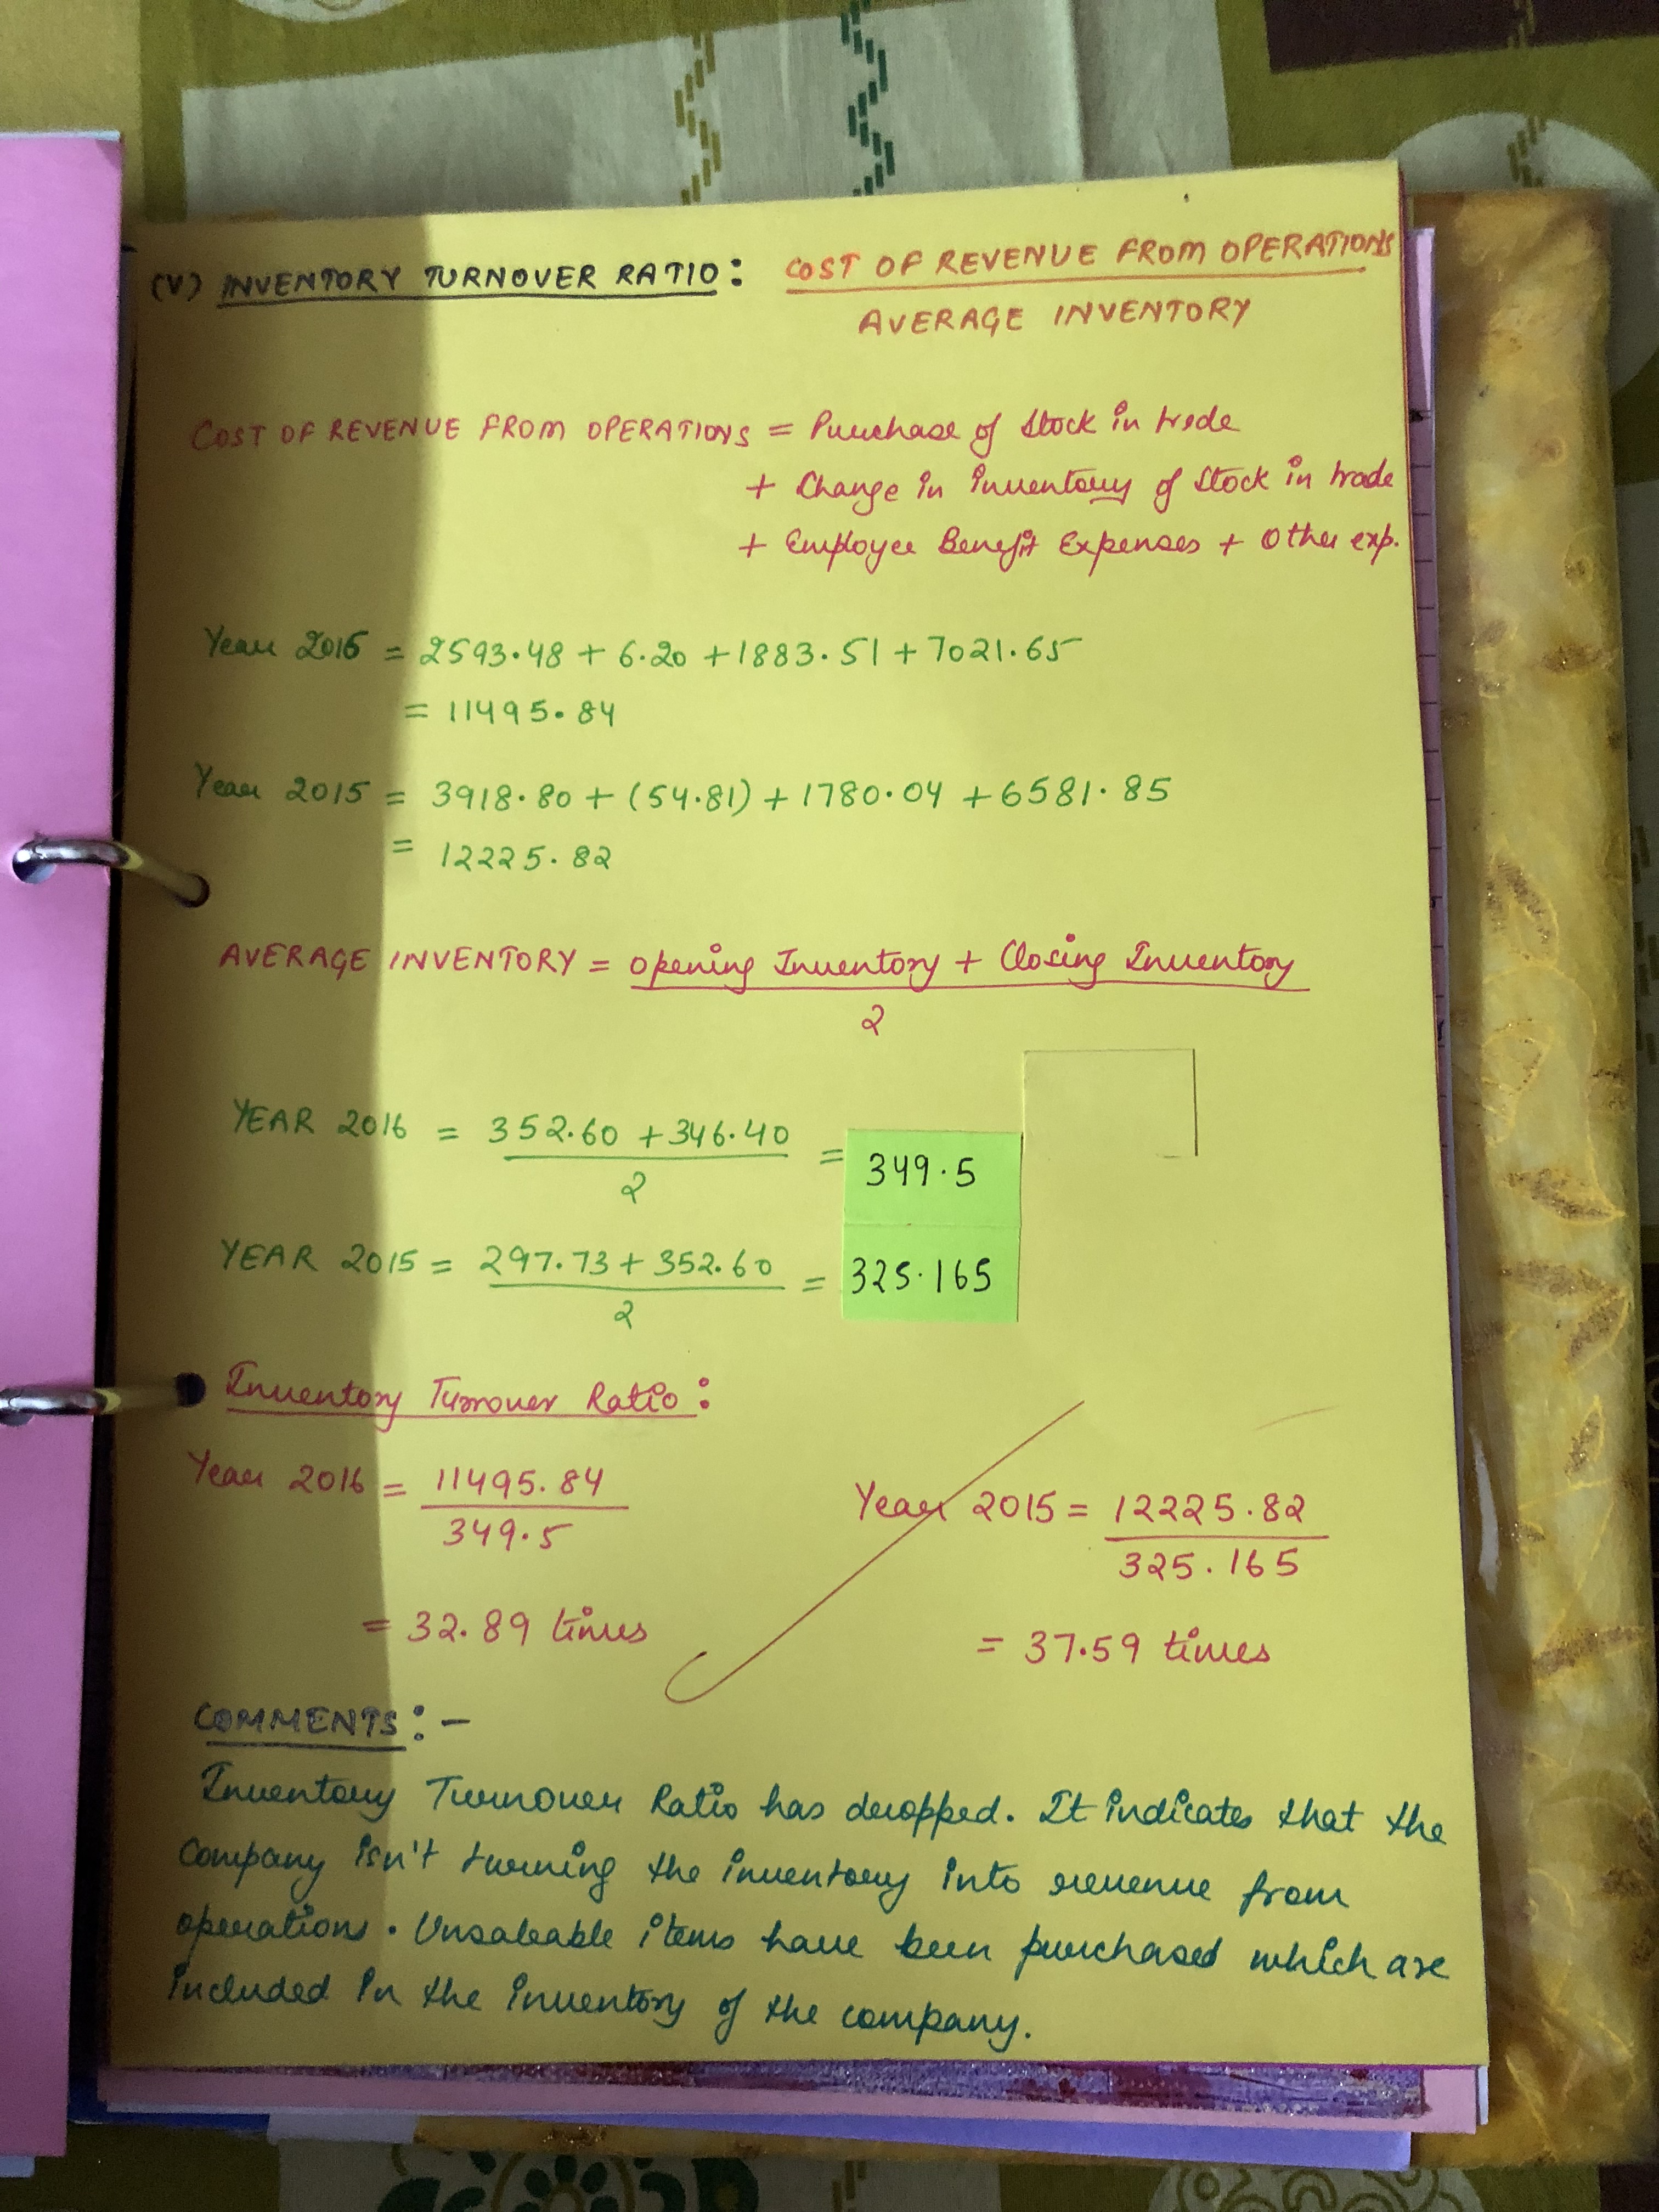 (V) INVENTORY TURNOVER RATIO : COST OF REVENUE FROM OPERATIONS
AVERAGE INVENTORY
COST OF REVENUE FROM OPERATIONS = Purchase of Stock in trade
+ Change in inventory of Stock in trade
+ Employee Benefit Expenses + Other exp.
Year 2016 = 2593.48 + 6.20 + 1883.51 + 7021.65
= 11495.84
Year 2015 = 3918.80 + (54.81) + 1780.04 + 6581.85
= 12225.82
AVERAGE INVENTORY = Opening Inventory + Closing Inventory
2
YEAR 2016 = 352.60 + 346.40 = 349.5
2
YEAR 2015 = 297.73 + 352.60 = 325.165
2
Inventory Turnover Ratio :
Year 2016 = 11495.84
349.5
= 32.89 times
Year 2015 = 12225.82
325.165
= 37.59 times
COMMENTS : -
Inventory Turnover Ratio has dropped. It indicates that the
Company isn't turning the inventory into revenue from
operations. Unsaleable items have been purchased which are
included in the inventory of the company.